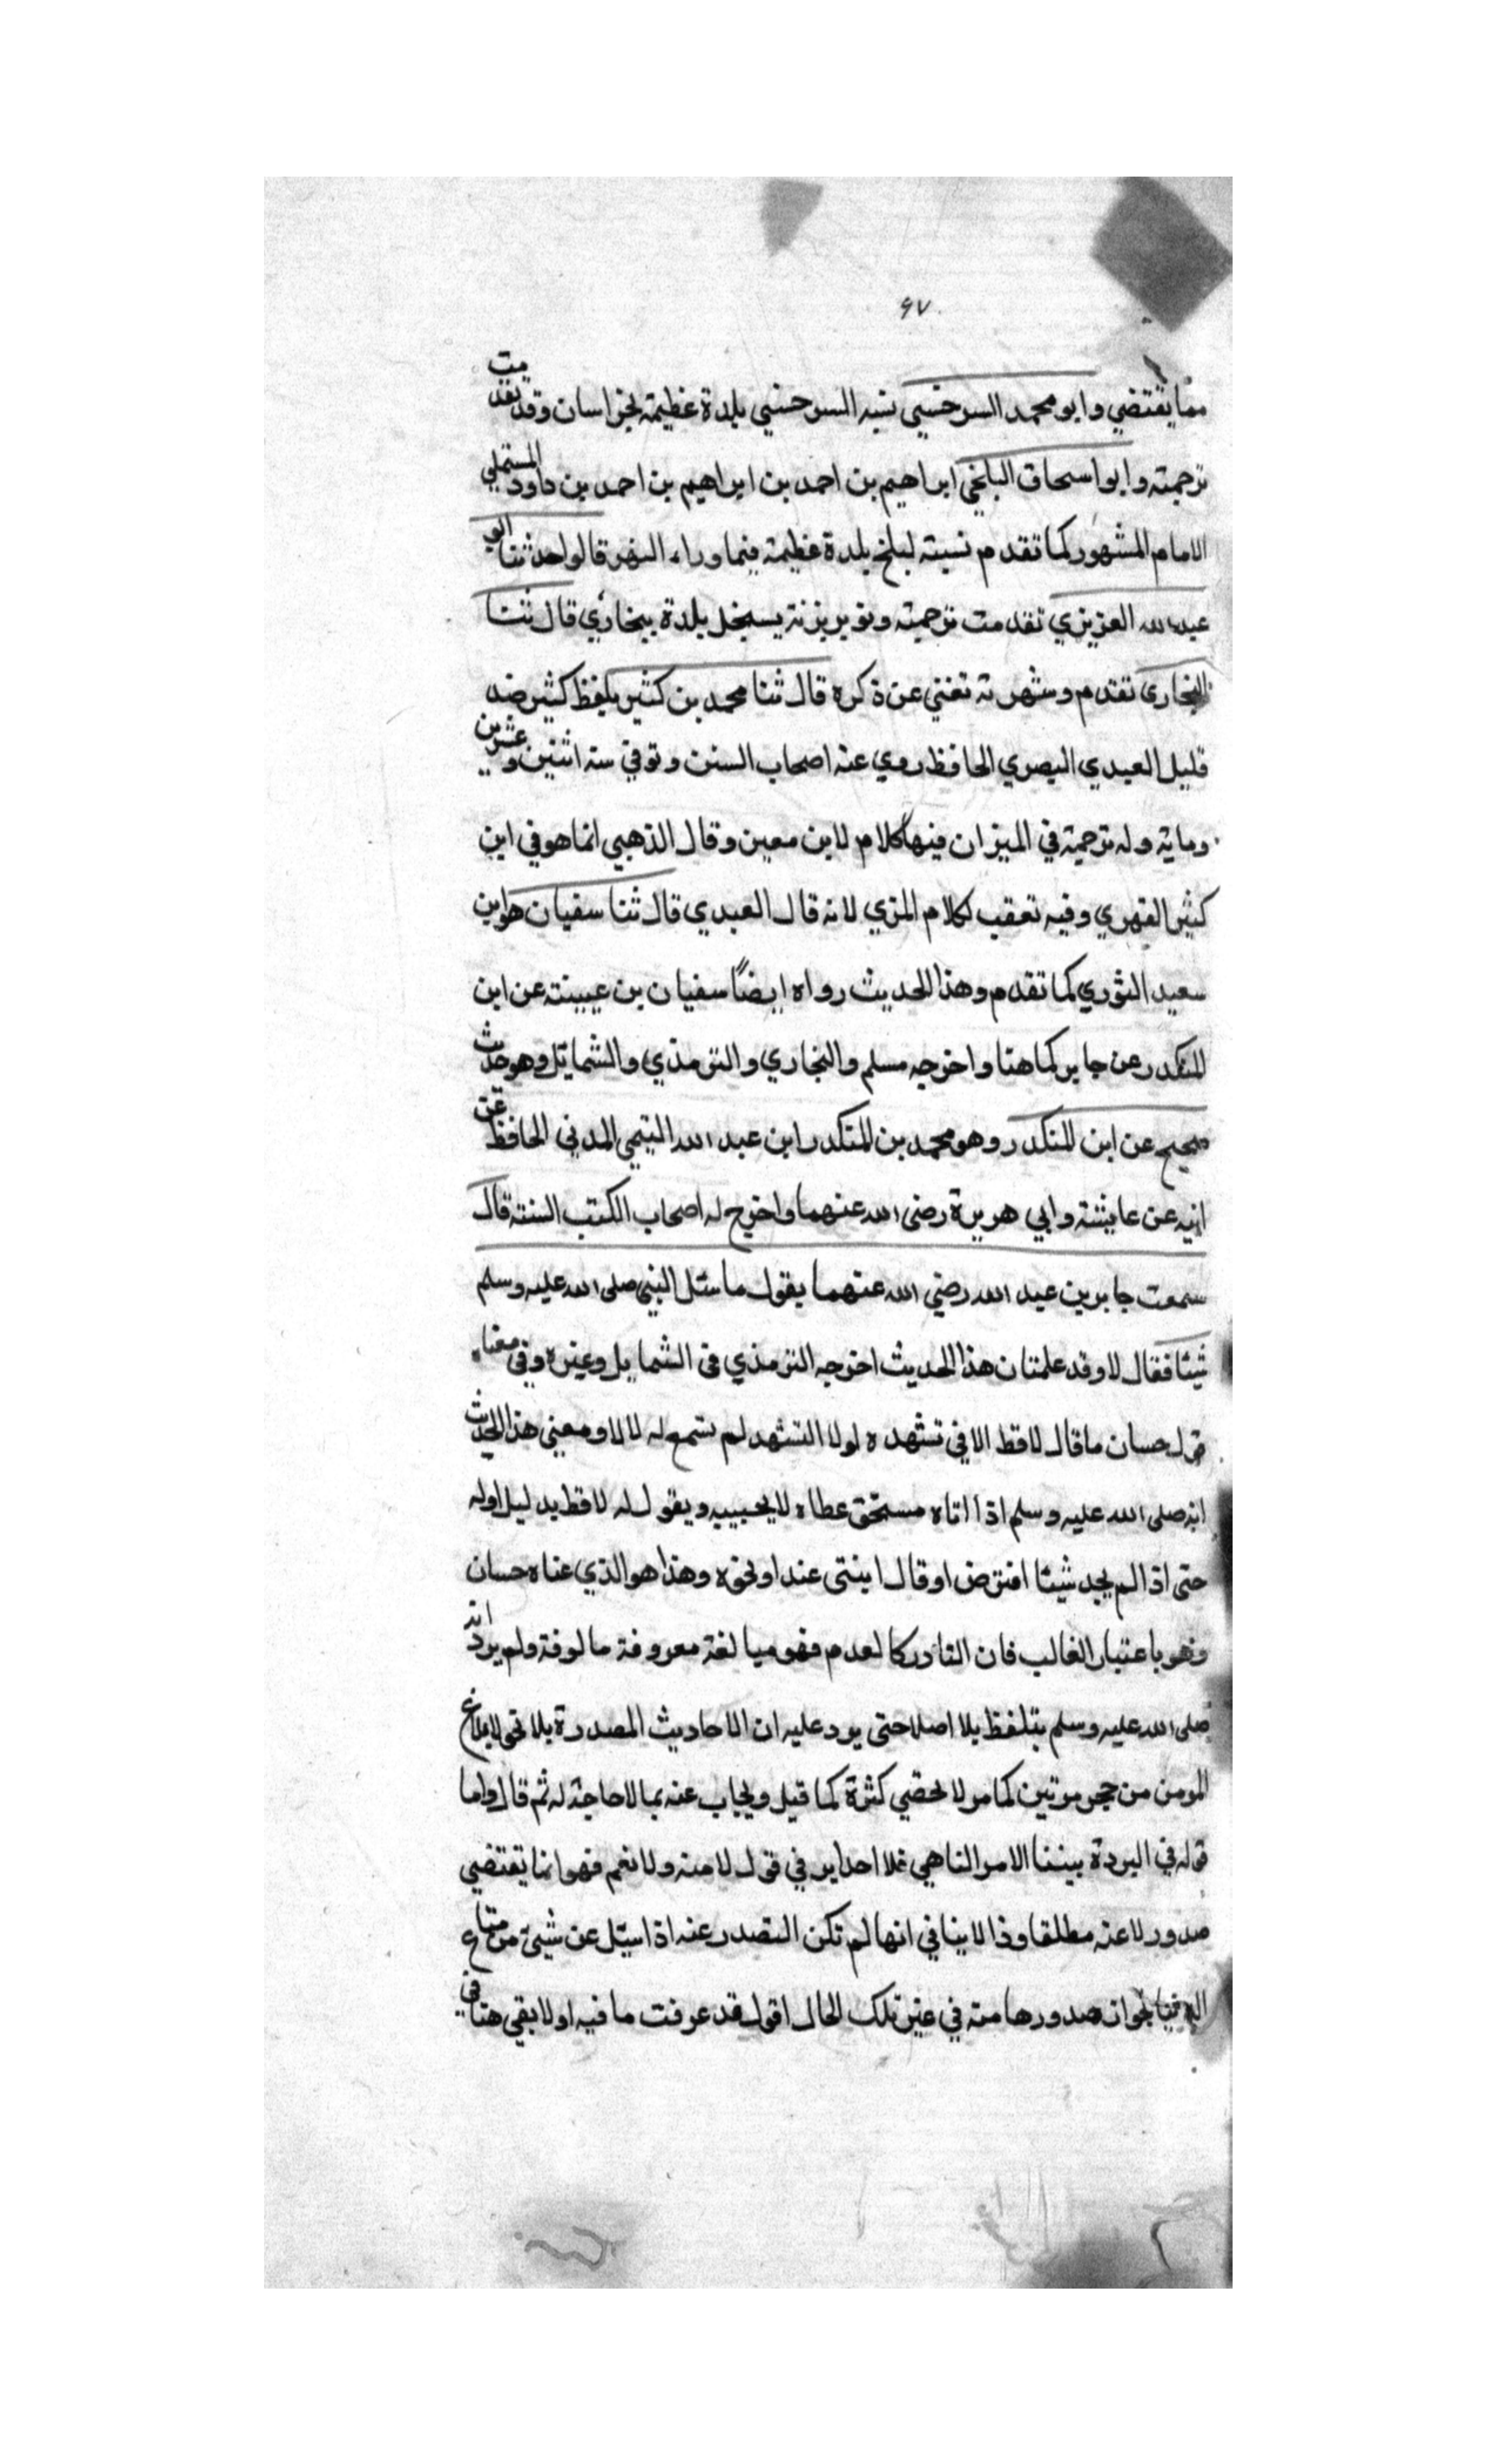 ٩٧
مما يقتضي وابو محمد السرخسي نسبه السرخسي بلدة عظيمة بخراسان وقد تقدمت
ترجمته وابو اسحاق البلخي ابراهيم بن احمد بن ابراهيم بن احمد بن داود المستملي
الامام المشهور كما تقدم نسبته لبلخ بلدة عظيمة فيما وراء النهر قالوا حدثنا ابو
عبد الله العزيزي تقدمت ترجمته بلدة ببخاري قال ثنا
البخاري تقدم وشهرته تغني عن ذكره قال ثنا محمد بن كثير بلفظ كثير ضد
قليل العبدي البصري الحافظ روي عنه اصحاب السنن وتوفي سنه اثنين وعشرين
وماية وله ترجمة في الميزان فيها كلام لابن معين وقال الذهبي انما هو في ابن
كثير الفهري وفيه تعقب لكلام المزي لانه قال العبدي قال ثنا سفيان هو ابن
سعيد الثوري كما تقدم وهذا الحديث رواه ايضاً سفيان بن عيينة عن ابن
المنكدر عن جابر كما هنا واخرجه مسلم والبخاري والترمذي والشمايل وهو حديث
صحيح عن ابن المنكدر وهو محمد بن المنكدر ابن عبد الله التيمي المدني الحافظ عن
ابيه عن عايشة وابي هريرة رضى الله عنهما واخرج له اصحاب الكتب الستة قال
سمعت جابر بن عبد الله رضي الله عنهما يقول ما سئل النبي صلى الله عليه وسلم
شيئا فقال لا وقد علمت ان هذا الحديث اخرجه الترمذي فى الشمايل وغيره وفي معناه
قول حسان ما قال لا قط الا في تشهده لولا التشهد لم تسمع له لالا ومعنى هذا الحديث
انه صلى الله عليه وسلم اذا اتاه مستحق عطاه لا يجيبه ويقول له لا قط بدليل اوله
حتى اذا لم يجد شيئا افترض او قال ايتنى غدا ونحوه وهذا هو الذي عناه حسان
وهو باعتبار الغالب فان النادر كالعدم فهو مبالغة معروفة مالوفة ولم يرد انه
صلى الله عليه وسلم يتلفظ بلا اصلا حتى يرد عليه ان الاحاديث المصدرة بلا نحو لا يلدغ
المومن من جحر مرتين كما مر لا تحصي كثرة كما قيل ويجاب عنه بما لا حاجة له ثم قال واما
قوله في البردة نبينا الامر الناهي فلا احد ابر في قول لا منه ولا نعم فهو انما يقتضي
صدور لا عنه مطلقا وذا لا ينافي انها لم تكن لتصدر عنه اذا سئل عن شيئ من متاع
الدنيا لجواز صدورها منه في غير تلك الحال اقول قد عرفت ما فيه اولا بقي هنا في